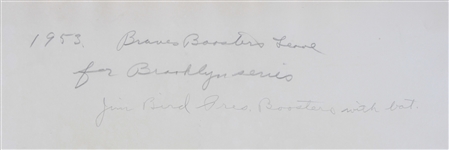 1953. Braves Boosters Leave
for Brooklyn series
Jim Bird Pres. Boosters with bat.